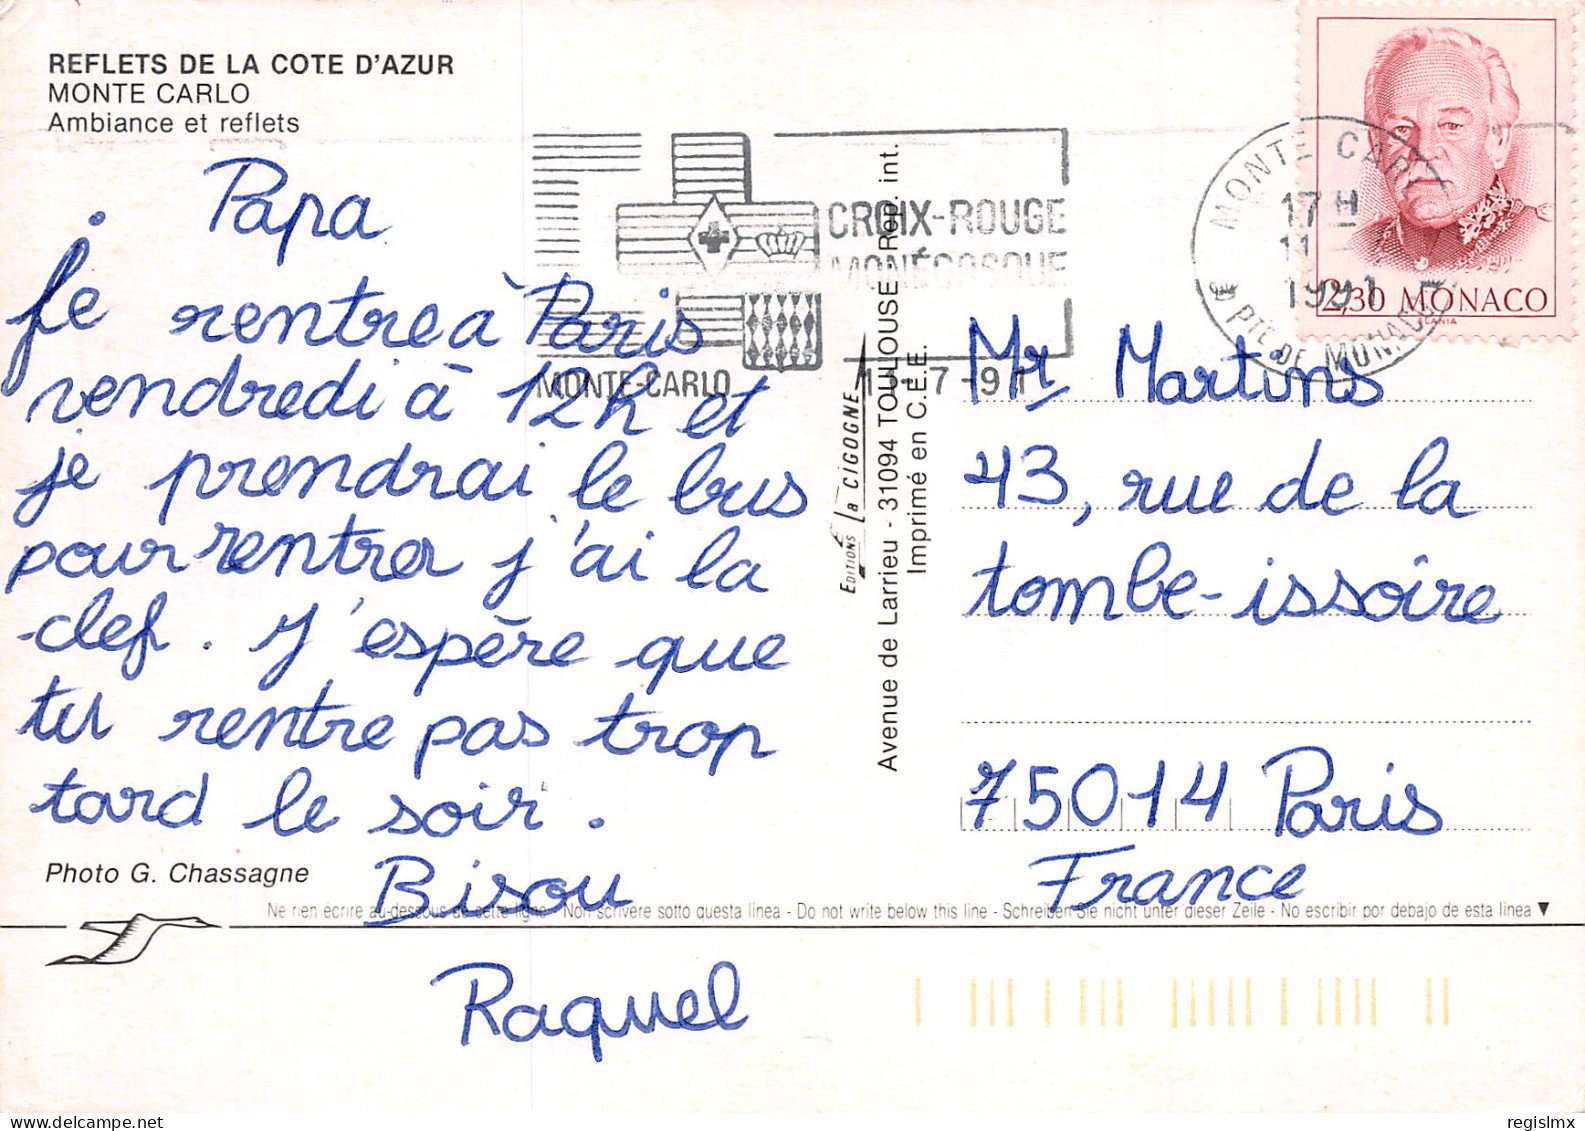 REFLETS DE LA COTE D'AZUR
MONTE CARLO
Ambiance et reflets
Papa
Je rentre à Paris
vendredi à 12h et
je prendrai le bus
pour rentrer j'ai la
clef. J'espère que
tu rentre pas trop
tard le soir.
Bisou
Raquel
Photo G. Chassagne
CROIX-ROUGE
MONÉGASQUE
MONTE-CARLO
11-7-91
EDITIONS La CIGOGNE
Avenue de Larrieu - 31094 TOULOUSE Rep. int.
Imprimé en C.E.E.
MONTE CARLO
17 H
11
1991
PTE DE MONACO
2,30 MONACO
Mr Martins
43, rue de la
tombe-issoire
75014 Paris
France
Ne rien écrire au-dessous de cette ligne - Non scrivere sotto questa linea - Do not write below this line - Schreiben Sie nicht unter dieser Zeile - No escribir por debajo de esta linea ▼
regislmx